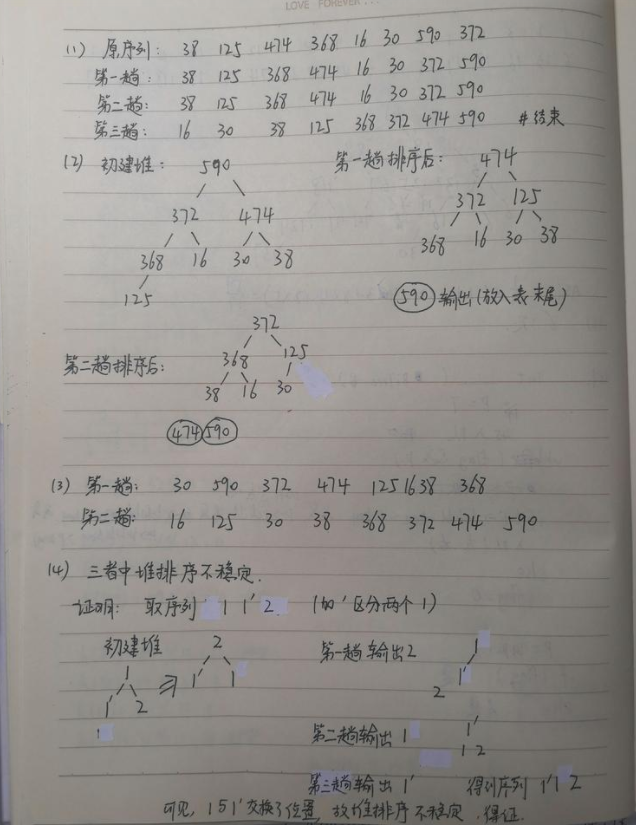 LOVE FOREVER...
(1) 原序列: 38 125 474 368 16 30 590 372
第一趟: 38 125 368 474 16 30 372 590
第二趟: 38 125 368 474 16 30 372 590
第三趟: 16 30 38 125 368 372 474 590 #结束
(2) 初建堆:
590
372 474
368 16 30 38
125
第一趟排序后:
474
372 125
368 16 30 38
590 输出(放入表末尾)
第二趟排序后:
372
368 125
38 16 30
474 590
(3) 第一趟: 30 590 372 474 125 16 38 368
第二趟: 16 125 30 38 368 372 474 590
(4) 三者中堆排序不稳定.
证明: 取序列 1 1' 2 (加'区分两个1)
初建堆
1
1' 2
⇒
2
1' 1
第一趟输出2
1
1'
2
第二趟输出1
1'
1 2
第三趟输出1' 得到序列 1' 1 2
可见, 1与1'交换了位置, 故堆排序不稳定. 得证.